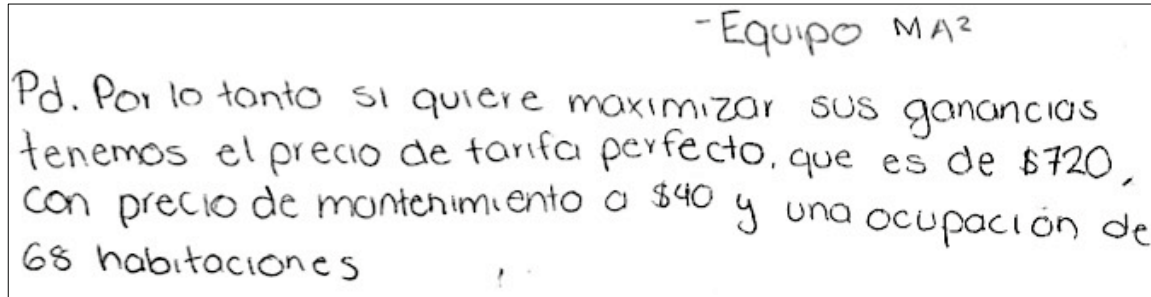 -Equipo MA²
Pd. Por lo tanto si quiere maximizar sus ganancias
tenemos el precio de tarifa perfecto, que es de $720,
con precio de mantenimiento a $40 y una ocupación de
68 habitaciones